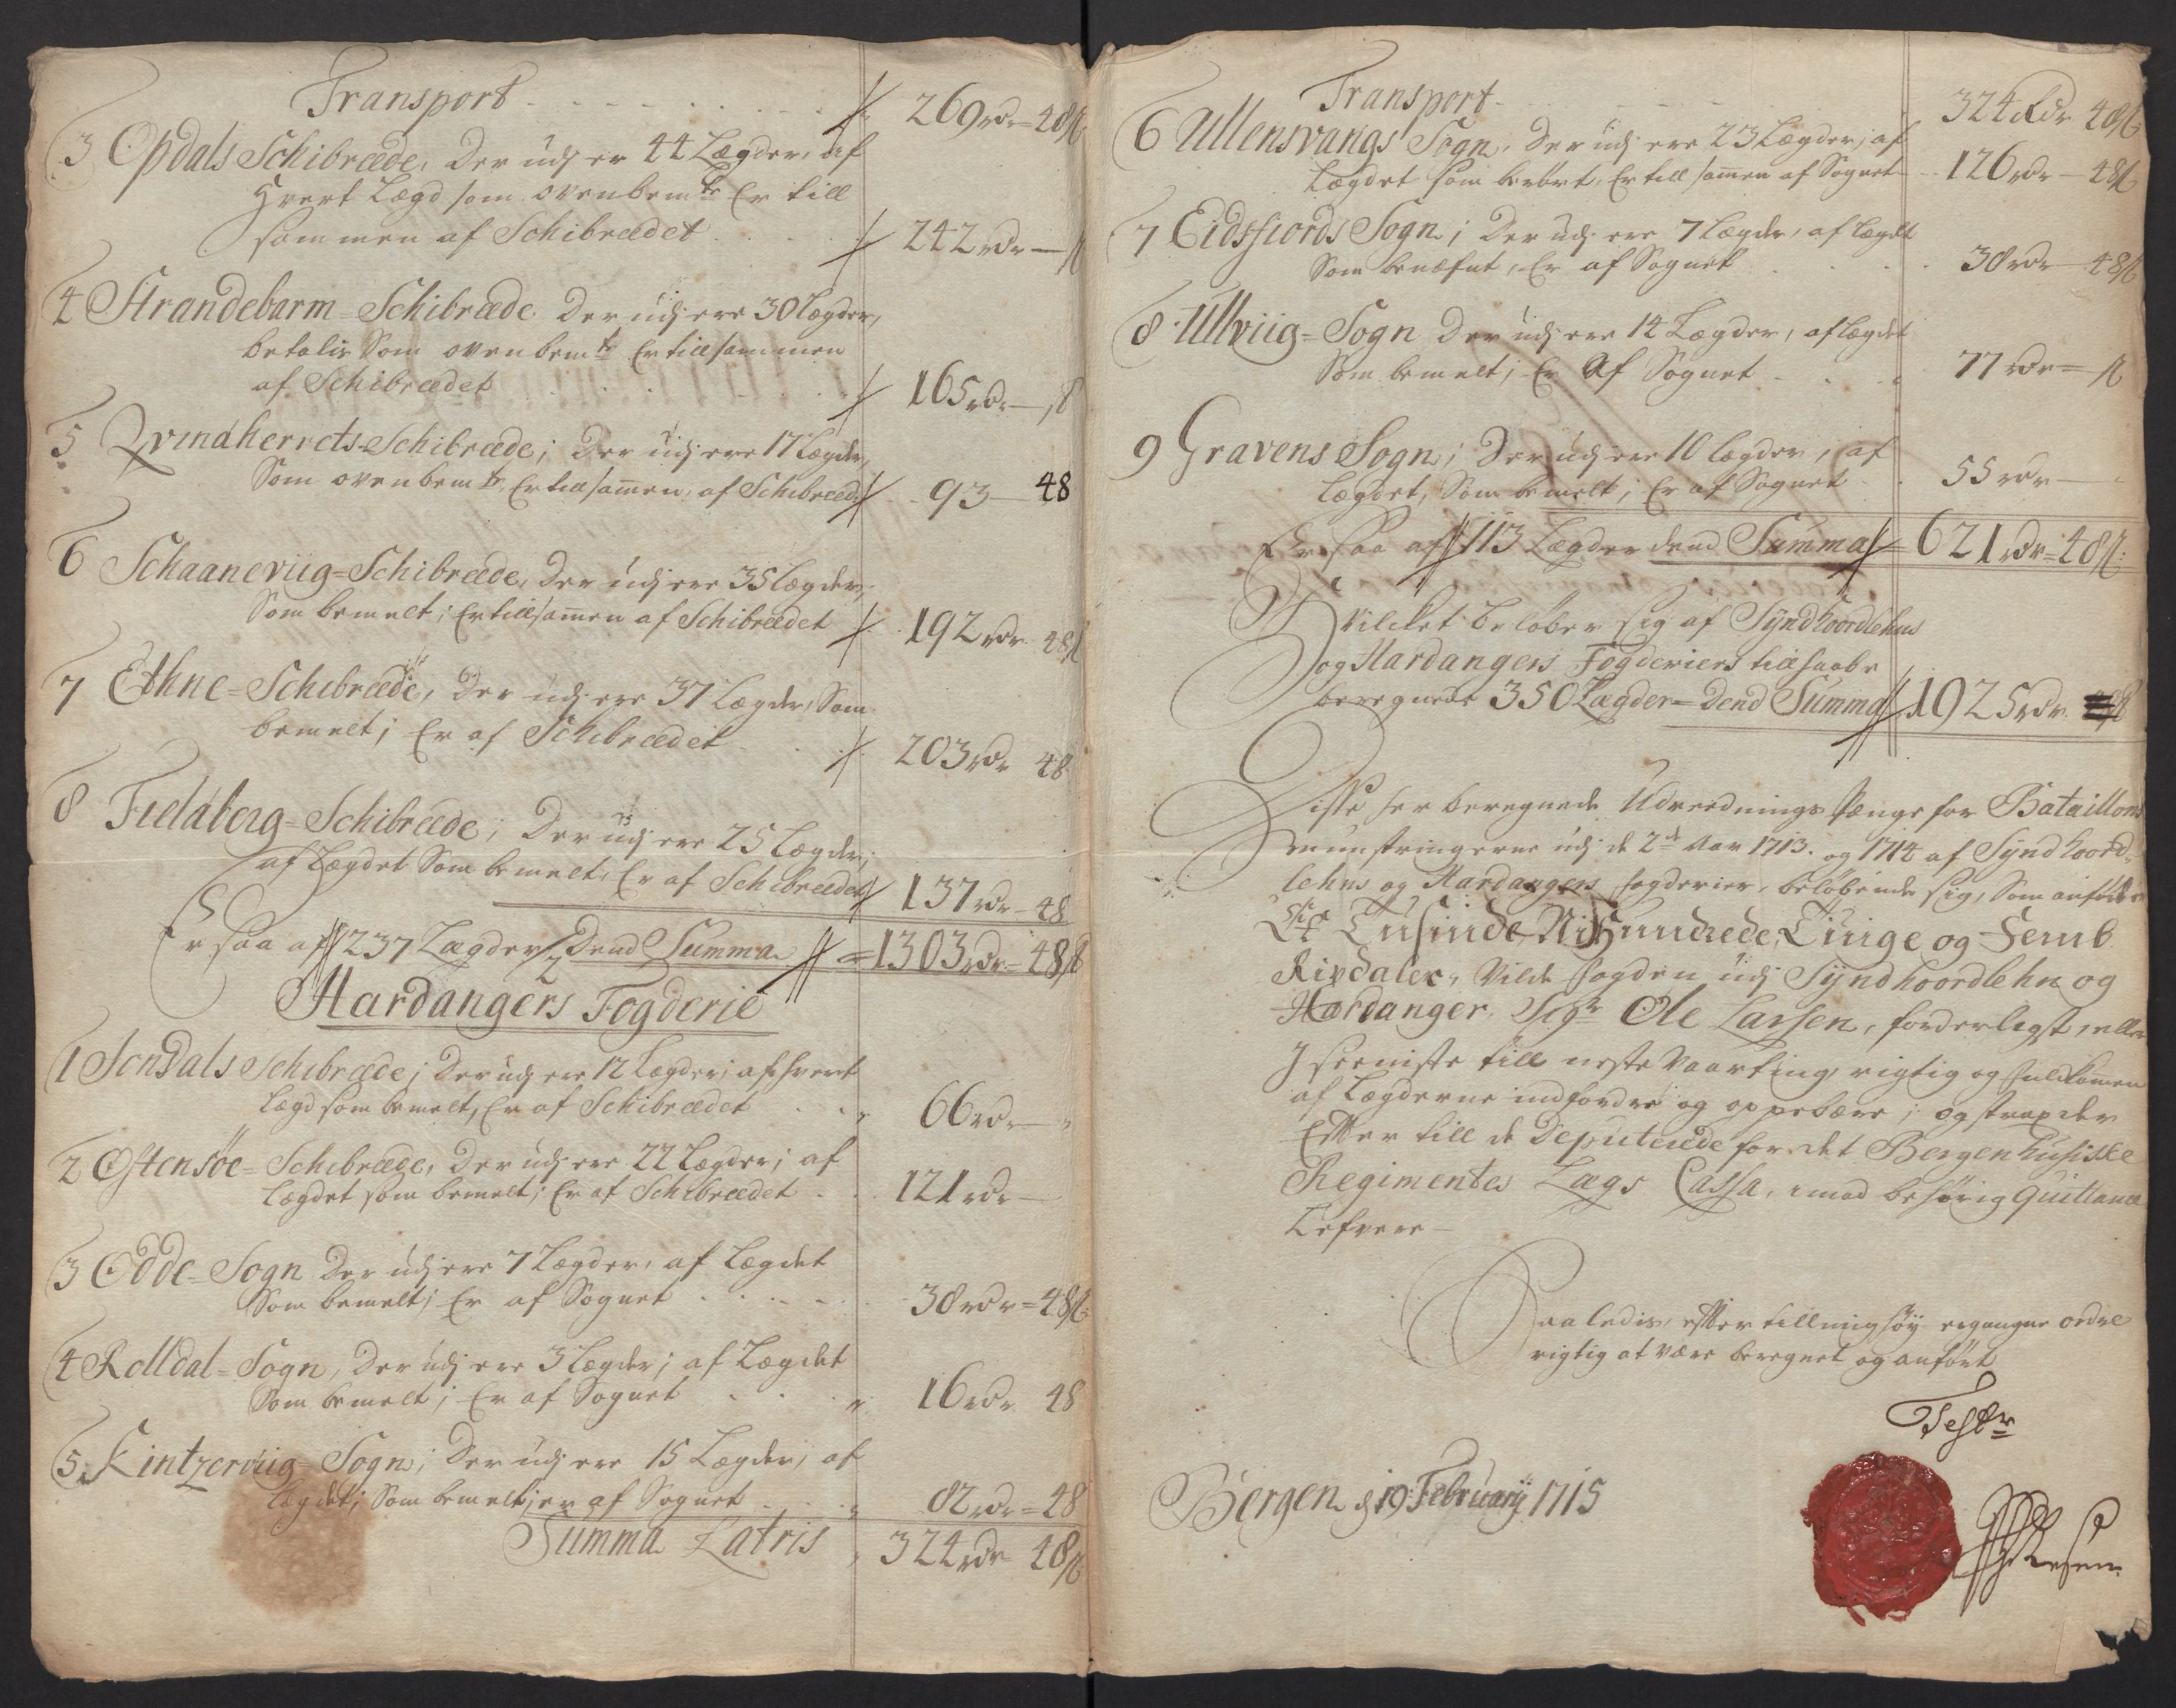 Transport 269 rdr = 48 ß
3 Opdals Schibræde, Der udj er 44 Lægder, af
Hvert Lægd som ovenbemte Er till
sammen af Schibrædet 242 rdr — ß
4 Strandebarm = Schibræde Der udj ere 30 Lægder,
betalis Som ovenbemte Er till sammen
af Schibrædet 165 rdr — ß
5 Qvindherrets-Schibræde; Der udj ere 17 Lægder,
Som ovenbemte, Er till samen, af Schibræd: 93 — 48
6 Schaaneviig = Schibræde, Der udj ere 35 Lægder,
Som bemelt; Er till samen af Schibrædet 192 rdr 48 ß
7 Ethne = Schibræde, Der udj ere 37 Lægder, Som
bemelt; Er af Schibrædet 203 rdr 48
8 Fieldberg = Schibræde; Der udj ere 25 Lægder;
af Lægdet Som bemelt, Er af Schibrædet 137 rdr — 48
Er saa af 237 Lægder, Dend Summa = 1303 rdr — 48 ß
Hardangers Fogderie
1 Jondals Schibræde; Der udj ere 12 Lægder; af hvert
Lægd som bemelt, Er af Schibrædet 66 rdr —
2 Østensøe = Schibræde, Der udj ere 22 Lægder; af
Lægdet som bemelt; Er af Schibrædet 121 rdr —
3 Odde = Sogn Der udj ere 7 Lægder, af Lægdet
Som bemelt; Er af Sognet 38 rdr = 48 ß
4 Rolldal = Sogn, Der udj ere 3 Lægder; af Lægdet
Som bemelt; Er af Sognet 16 rdr 48
5 Kintzerviig = Sogn; Der udj ere 15 Lægder, af
Lægdet; Som bemelt; er af Sognet 82 rdr = 48
Summa Latris 324 rdr 48 ß
Transport 324 Rdr 48 ß
6 Ullensvangs Sogn, Der udj ere 23 Lægder; af
Lægdet som berørt, Er till samen af Sognet 126 rdr — 48 ß
7 Eidsfiords Sogn; Der udj ere 7 Lægder, af Lægdt
Som benæfnt, Er af Sognet 38 rdr — 48 ß
8 Ullviig = Sogn Der udj ere 14 Lægder, af Lægdet
Som bemelt; Er Af Sognet 77 rdr = ß
9 Gravens Sogn; Der udj ere 10 Lægder, af
Lægdet, Som bemelt; Er af Sognet 55 rdr —
Er saa af 113 Lægder dend Summa = 621 rdr = 48 ß
Hvilcket beløber sig af Syndhoordlehns
og Hardangers Fogderiers till saabe
beregnede 350 Lægder = Dend Summa 1925 rdr
Disse her beregnede Udreednings Penge for Bataillons
Munstringerne udj de 2de Aar 1713. og 1714 af Syndhoord-
lehns og Hardangers fogderier, beløbende sig, Som anførdt
Et Tusinde Ni Hundrede Tiuge og Femb
Rixdaler, Vilde fogden udj Syndhoordlehn og
Hardanger, Sigr Ole Larsen, forderligst, eller
I seeniste till neste Vaarting, rigtig og fuldkommen
af Lægderne indfordre og oppebære; og strax der
Efter till de Deputerede for det Bergenhusiske
Regimentes Lægs Cassa, imod behørig Quittance
Lefvere —
Saaledis, efter till mig høy ergangne ordre
rigtig at være beregnet og anført
Tester
Bergen d 19: Februarij 1715